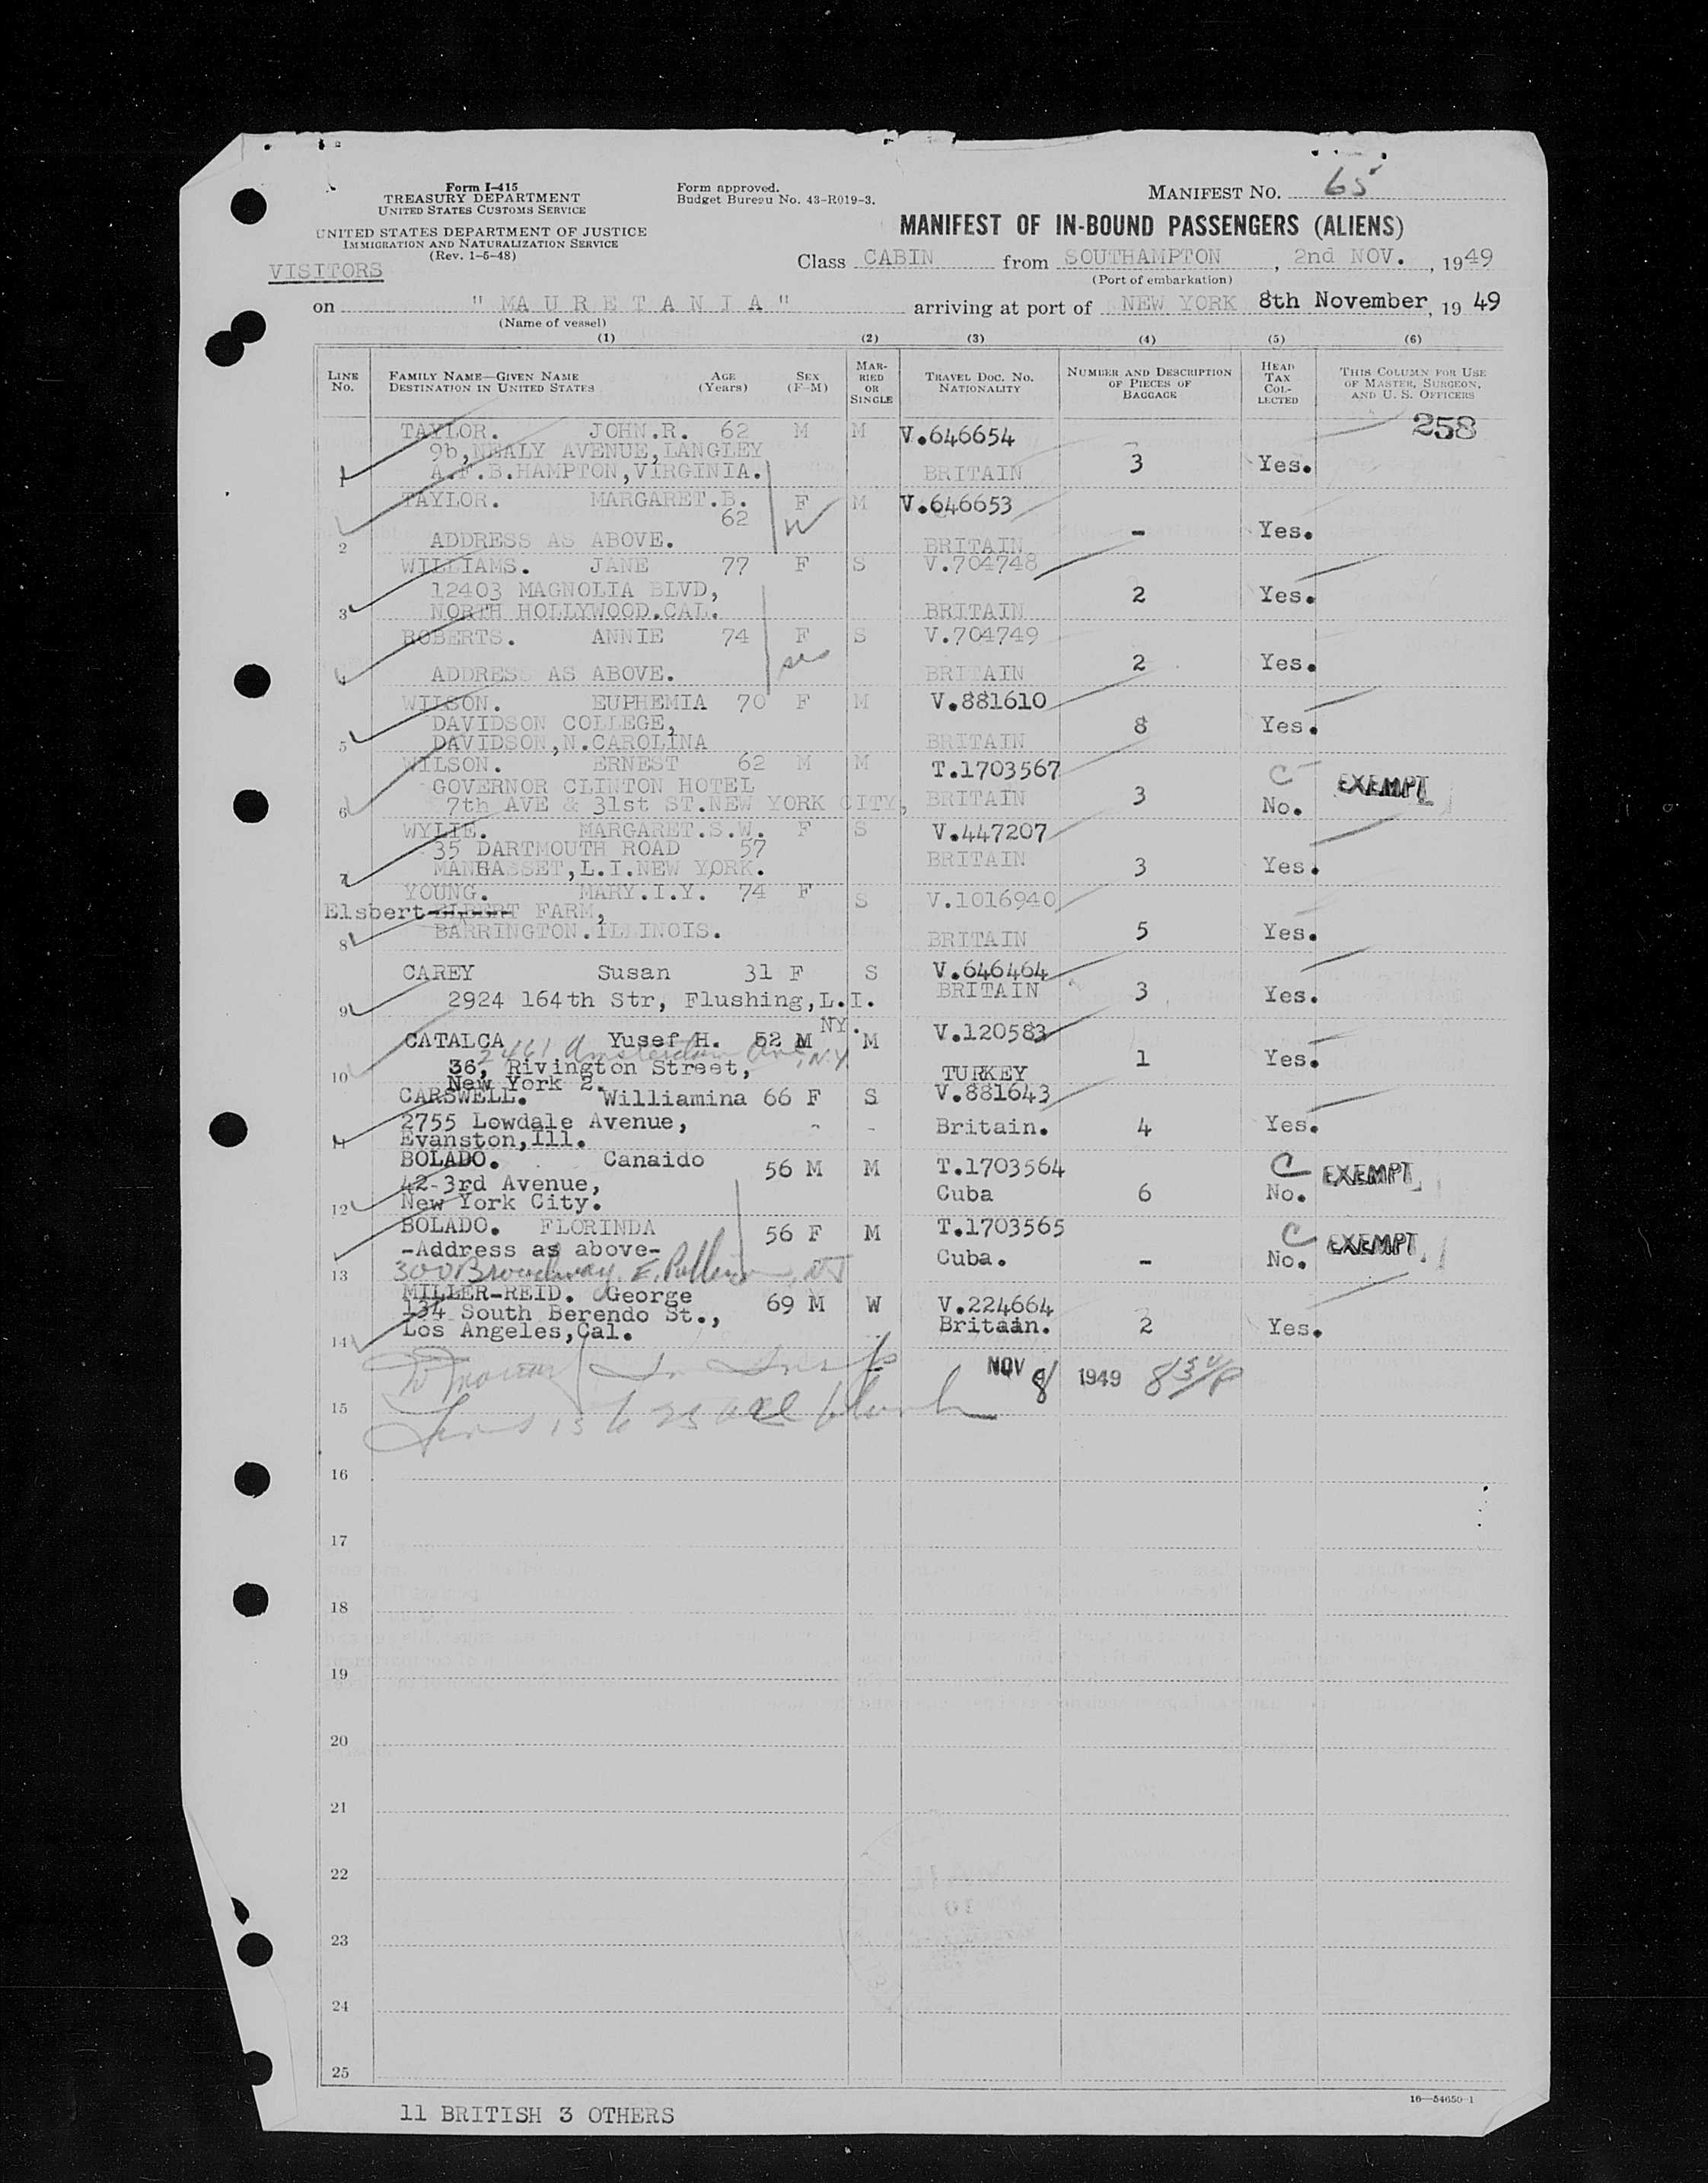 Form I-415
TREASURY DEPARTMENT
UNITED STATES CUSTOMS SERVICE
UNITED STATES DEPARTMENT OF JUSTICE
IMMIGRATION AND NATURALIZATION SERVICE
(Rev. 1-5-48)
VISITORS
Form approved.
Budget Bureau No. 43-R019-3.
MANIFEST NO. 65
MANIFEST OF IN-BOUND PASSENGERS (ALIENS)
Class CABIN from SOUTHAMPTON, 2nd NOV., 1949
(Port of embarkation)
on "MAURETANIA" arriving at port of NEW YORK 8th November, 19 49
(Name of vessel)
(1) (2) (3) (4) (5) (6)
LINE No. FAMILY NAME—GIVEN NAME DESTINATION IN UNITED STATES AGE (Years) SEX (F-M) MARRIED OR SINGLE TRAVEL DOC. NO. NATIONALITY NUMBER AND DESCRIPTION OF PIECES OF BAGGAGE HEAD TAX COLLECTED THIS COLUMN FOR USE OF MASTER, SURGEON, AND U. S. OFFICERS
258
TAYLOR. JOHN.R. 62 M M V.646654
9b,NEALY AVENUE,LANGLEY
1 A.F.B.HAMPTON,VIRGINIA. BRITAIN 3 Yes.
TAYLOR. MARGARET.B. F M V.646653
62 W
2 ADDRESS AS ABOVE. BRITAIN - Yes.
WILLIAMS. JANE 77 F S V.704748
12403 MAGNOLIA BLVD,
3 NORTH HOLLYWOOD.CAL. BRITAIN 2 Yes.
ROBERTS. ANNIE 74 F S V.704749
4 ADDRESS AS ABOVE. BRITAIN 2 Yes.
WILSON. EUPHEMIA 70 F M V.881610
DAVIDSON COLLEGE,
5 DAVIDSON,N.CAROLINA BRITAIN 8 Yes.
WILSON. ERNEST 62 M M T.1703567
GOVERNOR CLINTON HOTEL C EXEMPT
6 7th AVE & 31st ST.NEW YORK CITY, BRITAIN 3 No.
WYLIE. MARGARET.S.W. F S V.447207
35 DARTMOUTH ROAD 57
7 MANHASSET,L.I.NEW YORK. BRITAIN 3 Yes.
YOUNG. MARY.I.Y. 74 F S V.1016940
Elsbert ELBERT FARM,
8 BARRINGTON.ILLINOIS. BRITAIN 5 Yes.
CAREY Susan 31 F S V.646464
9 2924 164th Str, Flushing,L.I. BRITAIN 3 Yes.
NY.
CATALCA Yusef H. 52 M M V.120583
2461 Amsterdam Ave, N.Y.
10 36, Rivington Street, TURKEY 1 Yes.
New York 2.
CARSWELL. Williamina 66 F S V.881643
2755 Lowdale Avenue, - - Britain. 4 Yes.
11 Evanston,Ill.
BOLADO. Canaido 56 M M T.1703564 C EXEMPT
42-3rd Avenue, Cuba 6 No.
12 New York City.
BOLADO. FLORINDA 56 F M T.1703565 C EXEMPT
-Address as above- Cuba. - No.
13 300 Broadway, E.
MILLER-REID. George 69 M W V.224664
134 South Berendo St., Britain. 2 Yes.
14 Los Angeles,Cal.
NOV 8 1949
15 Lines 15 to 25 all blank
16
17
18
19
20
21
22
23
24
25
16—54650-1
11 BRITISH 3 OTHERS